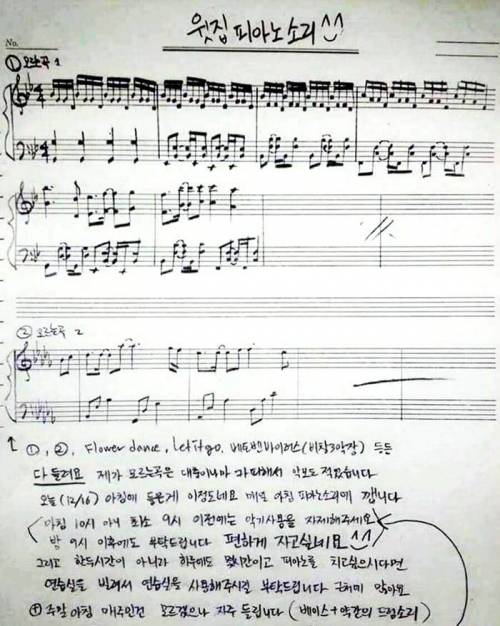 윗집 피아노소리^^
No.
① 모르는곡 1
② 모르는곡 2
↑ ①, ②, Flower dance, Let it go, 베토벤바이러스(비창3악장) 등등
다 들려요 제가 모르는곡은 대충이나마 카피해서 악보도 적었습니다
오늘(12/16) 아침에 들은게 이정도네요 매일 아침 피아노소리에 깹니다
(아침 10시 아니 최소 9시 이전에는 악기사용을 자제해주세요
밤 9시 이후에도 부탁드립니다 편하게 자고싶네요^^)
그리고 한두시간이 아니라 하루에도 몇시간이고 피아노를 치고싶으시다면
연습실을 빌려서 연습실을 사용해주시길 부탁드립니다 근처에 많아요
⊕ 주말 아침 매주인건 모르겠으나 자주 들립니다 (베이스+약간의 드럼소리)